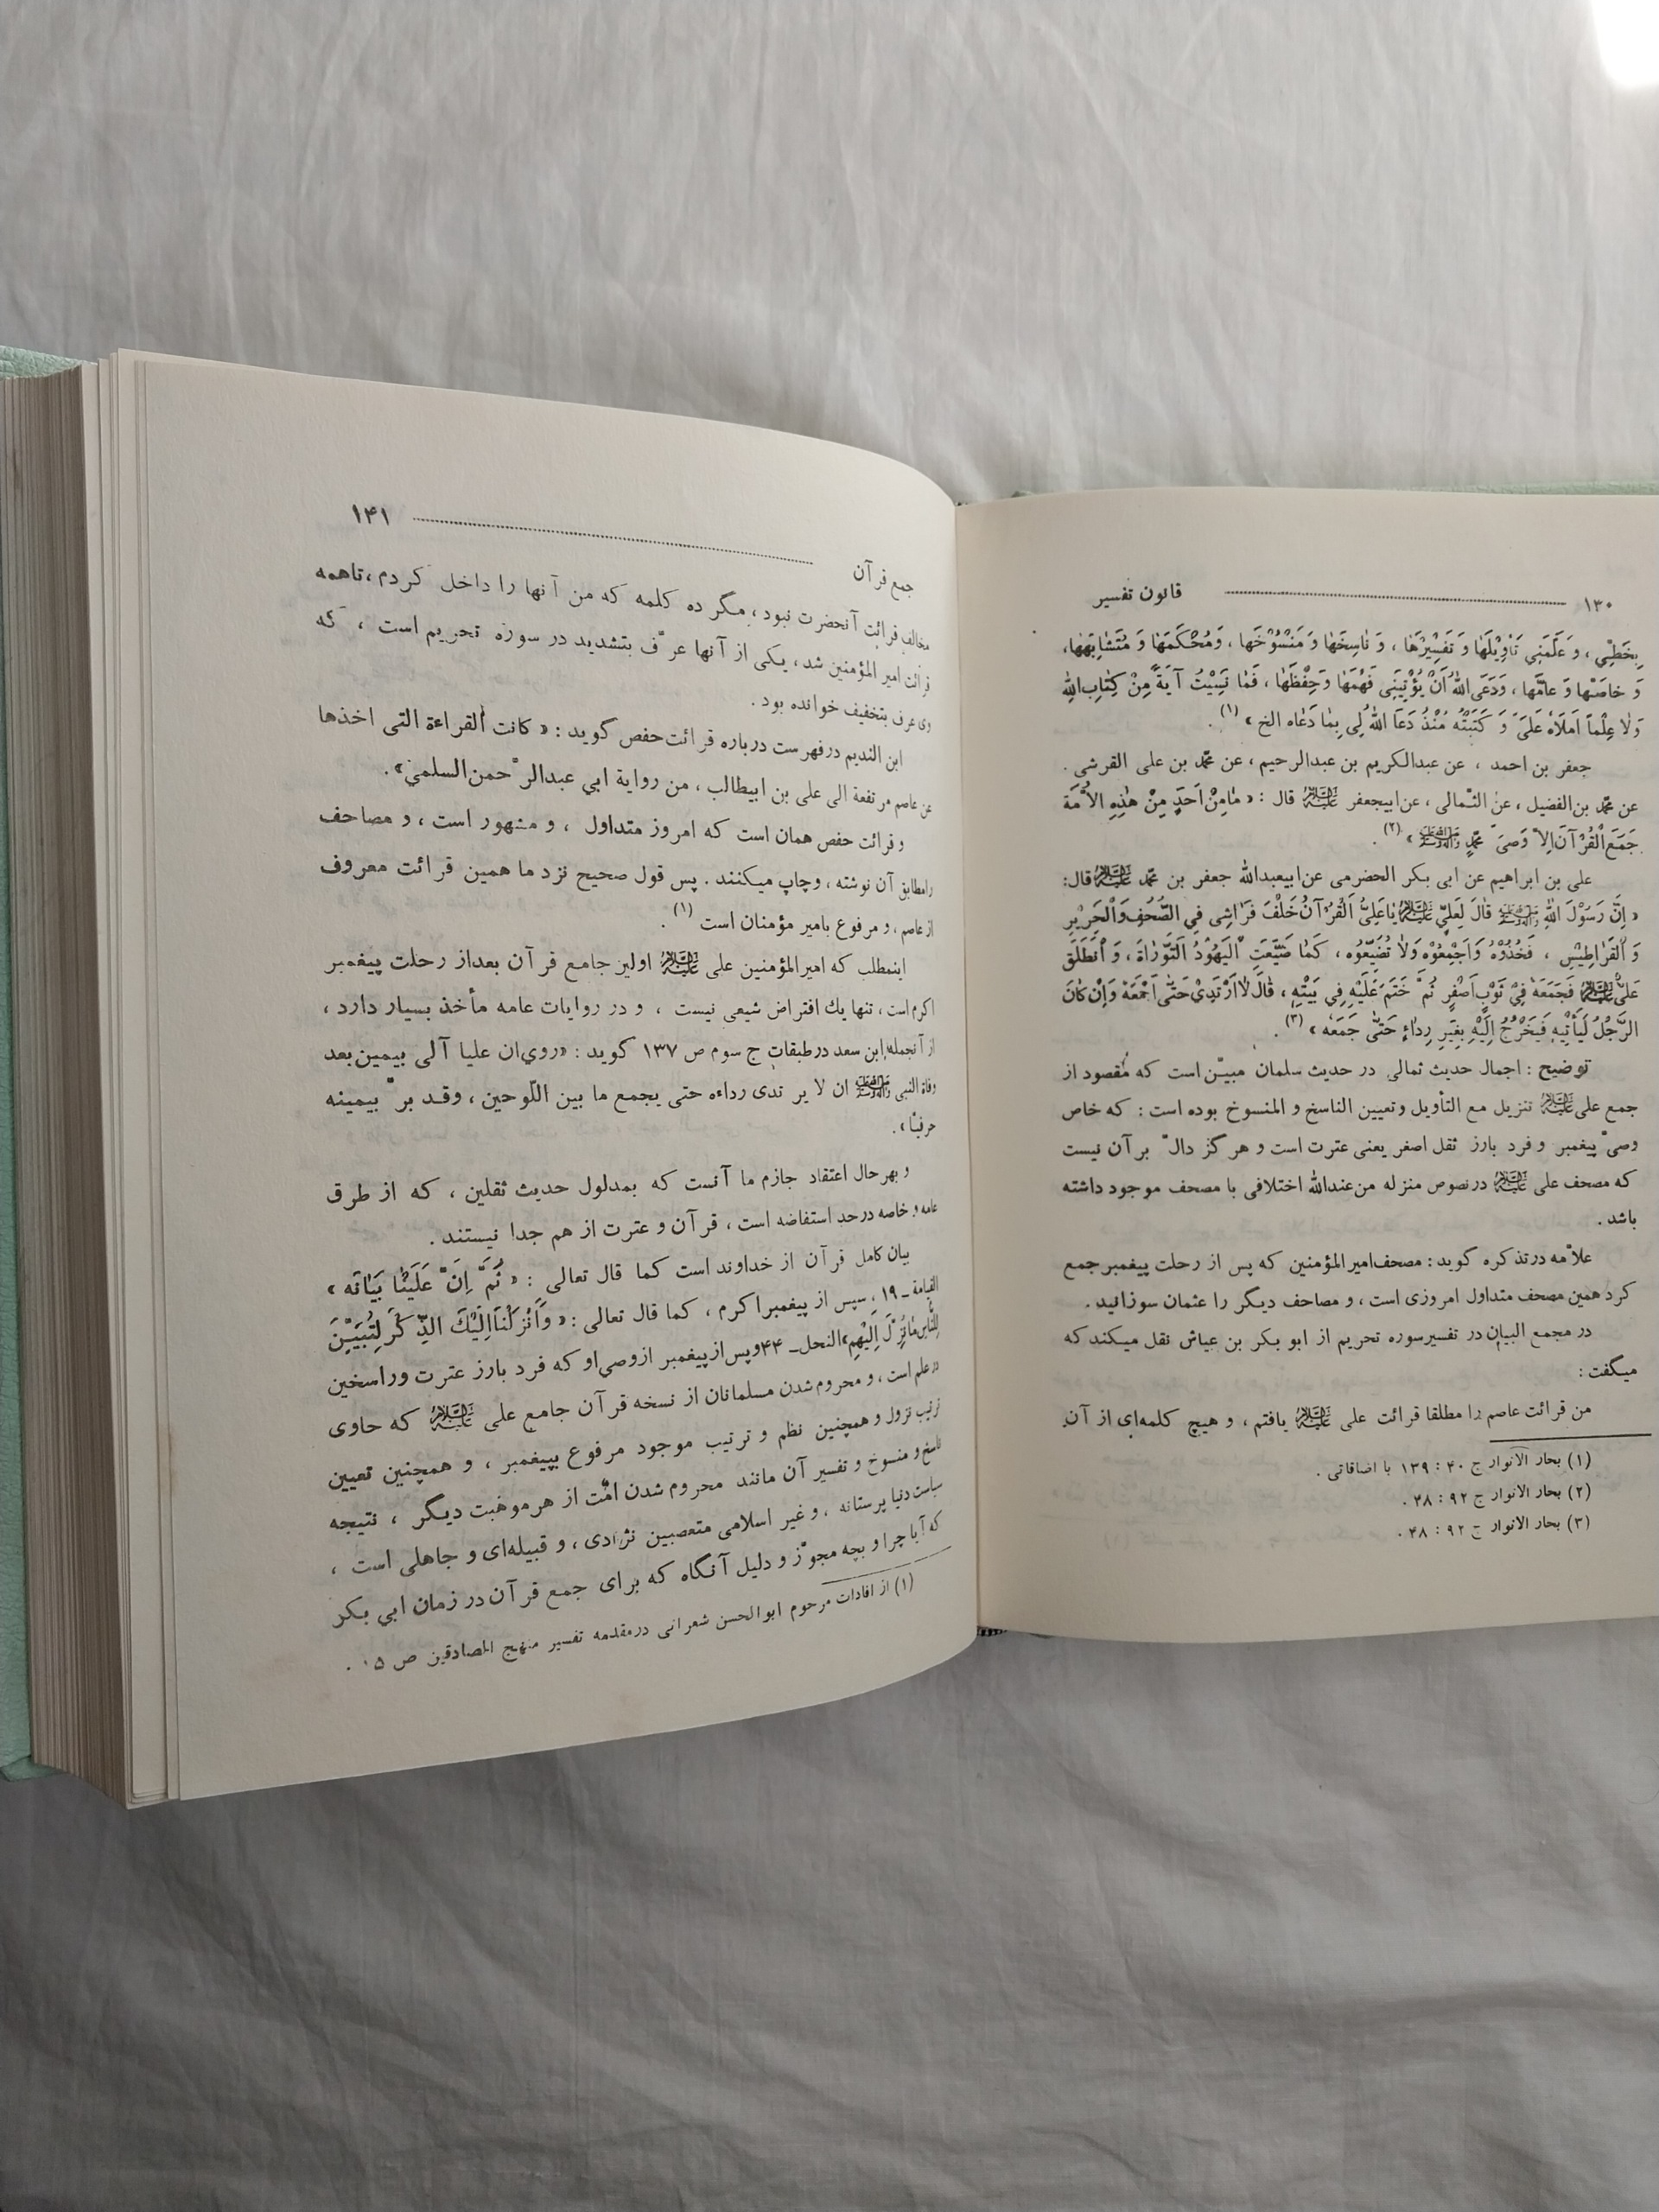 ۱۳۰ قانون تفسیر
بِخَطّي ، وَ عَلَّمَنِي تَأْوِيْلَهٰا وَ تَفْسِيْرَهٰا ، وَ نٰاسِخَهٰا وَ مَنْسُوْخَهٰا ، وَمُحْكَمَهٰا وَ مُتَشٰابِهَهٰا،
وَ خاصَّهٰا وَ عامَّهٰا ، وَدَعَى اللهُ اَنْ يُؤْتِيَنِي فَهْمَهٰا وَحِفْظَهٰا ، فَمٰا نَسِيْتُ آيَةً مِنْ كِتٰابِ اللهِ
وَلٰا عِلْماً اَمْلَاهُ عَلَيَّ وَ كَتَبْتُه مُنْذُ دَعَا اللهَ لِي بِمٰا دَعٰاه الخ » (۱) .
جعفر بن احمد ، عن عبدالكريم بن عبدالرحيم ، عن محمد بن على القرشى .
عن محمد بن الفضيل ، عن الثمالى ، عن ابيجعفر عليه السلام قال : « مٰامِنْ اَحَدٍ مِنْ هٰذِهِ الاُمَّة
جَمَعَ الْقُرْآنَ اِلاّ وَصىّ محمدٍ صلى الله عليه وآله وسلم » (۲) .
على بن ابراهيم عن ابى بكر الحضرمى عن ابيعبدالله جعفر بن محمد عليه السلام قال:
« اِنَّ رَسُوْلَ اللهِ صلى الله عليه وآله وسلم قٰالَ لِعَلِيٍّ عليه السلام يٰاعَلِيُّ اَلْقُرْآنُ خَلْفَ فَرٰاشِى فِي الصُّحُفِ وَالْحَرِيْرِ
وَ الْقَرٰاطِيْسِ ، فَخُذُوْهُ وَاجْمِعُوْهُ وَلٰا تُضَيِّعُوه ، كَمٰا ضَيَّعَتِ الْيَهُوْدُ التَّوْرٰاةَ ، وَ انْطَلَقَ
عَلىٌّ عليه السلام فَجَمَعَهُ فِيْ ثَوْبٍ اَصْفَرٍ ثُمَّ خَتَمَ عَلَيْهِ فِي بَيْتِهِ ، قٰالَ لٰا اَرْتَدِيْ حَتّٰى اَجْمَعَهُ وَاِنْ كٰانَ
الرَّجُلُ لَيَأْتِيْهِ فَيَخْرُجُ اِلَيْهِ بِغَيْرِ رِدٰاءٍ حَتّٰى جَمَعَه » (۳) .
توضیح : اجمال حدیث ثمالی در حدیث سلمان مبیّن است که مقصود از
جمع علی علیه السلام تنزیل مع التأویل و تعیین الناسخ و المنسوخ بوده است : که خاص
وصیّ پیغمبر و فرد بارز ثقل اصغر یعنی عترت است و هرگز دالّ بر آن نیست
که مصحف علی علیه السلام در نصوص منزله من عندالله اختلافی با مصحف موجود داشته
باشد .
علاّمه در تذکره گوید : مصحف امیرالمؤمنین که پس از رحلت پیغمبر جمع
کرد همین مصحف متداول امروزی است ، و مصاحف دیگر را عثمان سوزانید .
در مجمع البیان در تفسیر سوره تحریم از ابو بکر بن عیاش نقل میکند که
میگفت :
من قرائت عاصم را مطلقا قرائت علی علیه السلام یافتم ، و هیچ کلمه‌ای از آن
(۱) بحار الانوار ج ۴۰ : ۱۳۹ با اضافاتی .
(۲) بحار الانوار ج ۹۲ : ۴۸ .
(۳) بحار الانوار ج ۹۲ : ۴۸ .
جمع قرآن ۱۴۱
مخالف قرائت آنحضرت نبود ، مگر ده کلمه که من آنها را داخل کردم ، تا همه
قرائت امیر المؤمنین شد ، یکی از آنها عرّف بتشدید در سوره تحریم است ، که
وی عرف بتخفیف خوانده بود .
ابن الندیم در فهرست درباره قرائت حفص گوید : « کانت القراءة التی اخذها
عن عاصم مرتفعة الی علی بن ابیطالب ، من روایة ابي عبدالرّحمن السلمي» .
و قرائت حفص همان است که امروز متداول ، و مشهور است ، و مصاحف
را مطابق آن نوشته ، و چاپ میکنند . پس قول صحیح نزد ما همین قرائت معروف
از عاصم ، و مرفوع بامیر مؤمنان است (۱) .
اینمطلب که امیرالمؤمنین علی علیه السلام اولین جامع قرآن بعداز رحلت پیغمبر
اکرم است ، تنها یك افتراض شیعی نیست ، و در روایات عامه مأخذ بسیار دارد ،
از آنجمله ابن سعد در طبقات ج سوم ص ۱۳۷ گوید : «روي ان علیا آلی بیمین بعد
وفاة النبي صلى الله عليه وآله وسلم ان لا یرتدی رداءه حتی یجمع ما بین اللّوحین ، وقد برّ بیمینه
حرفیّا» .
و بهر حال اعتقاد جازم ما آنست که بمدلول حدیث ثقلین ، که از طرق
عامه و خاصه در حد استفاضه است ، قرآن و عترت از هم جدا نیستند .
بیان کامل قرآن از خداوند است کما قال تعالی : « ثُمَّ اِنَّ عَلَيْنٰا بَيٰانَه »
القیامة - ۱۹ ، سپس از پیغمبر اکرم ، کما قال تعالی : « وَاَنْزَلْنَا اِلَيْكَ الذِّكْرَ لِتُبَيِّنَ
لِلنّاسِ مٰا نُزِّلَ اِلَيْهِم» النحل ـ ۴۴ وپس از پیغمبر از وصی او که فرد بارز عترت و راسخین
در علم است ، و محروم شدن مسلمانان از نسخه قرآن جامع علی علیه السلام که حاوی
ترتیب نزول و همچنین نظم و ترتیب موجود مرفوع بپیغمبر ، و همچنین تعیین
ناسخ و منسوخ و تفسیر آن مانند محروم شدن امّت از هر موهبت دیگر ، نتیجه
سیاست دنیا پرستانه ، و غیر اسلامی متعصبین نژادی ، و قبیله‌ای و جاهلی است ،
که آیا چرا و بچه مجوّز و دلیل آنگاه که برای جمع قرآن در زمان ابي بکر
(۱) از افادات مرحوم ابوالحسن شعرانی در مقدمه تفسیر منهج الصادقین ص